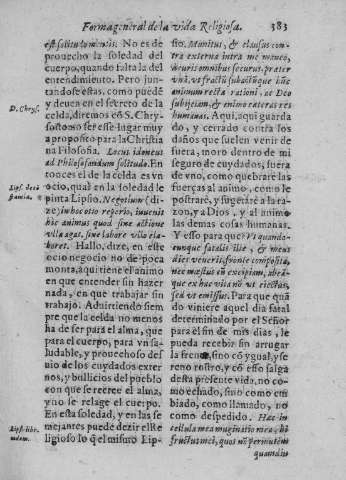 Forma general de la vida Religiosa. 383
est solitudo mentis. No es de
prouecho la soledad del
cuerpo, quando falta la del
entendimiento. Pero jun-
tandose estas, como puedẽ
y deuen en el secreto de la
celda, diremos cõ S. Chry-
sostomo ser esse lugar muy
a proposito para la Christia
na Filosofia. Locus idoneus
ad Philosofandum solitudo. En
tonces el de la celda es vn
ocio, qual en la soledad le
pinta Lipsio. Negotium (di-
ze) in hoc otio reperio, inuenit
hic animus quod sine actione
vlla agat, sine labore vllo ela-
boret. Hallo, dize, en este
ocio negocio no de poca
monta, aqui tiene el animo
en que entender sin hazer
nada, en que trabajar sin
trabajo. Aduirtiendo siem
pre que la celda no menos
ha de ser para el alma, que
para el cuerpo, para vn sa-
ludable, y prouechoso des
uio de los cuydados exter
nos, y bullicios del pueblo
con que se recree el alma,
y no se relage el cuerpo.
En esta soledad, y en las se
mejantes puede dezir el Re
ligioso lo q̃ el mismo Lip-
D. Chrys.
Lips. de cõ
stantia.
Lips. libr.
sio. Munitus, & clausus con-
tra externa intra me maneo,
securis omnibus securus, præter
vnã, vt fractũ subactũque hũc
animum rectæ rationi, ac Deo
subijciam, & animo cæteras res
humanas. Aqui, aqui guarda
do, y cerrado contra los
daños que suelen venir de
fuera, moro dentro de mi
seguro de cuydados, fuera
de vno, como quebrare las
fuerças al animo, como le
postrarè, y sugetarè a la ra-
zon, y a Dios, y al animo
las demas cosas humanas.
Y esso para que? Vt quando-
cunque fatalis ille, & meus
dies venerit, fronte composita,
nec mœstus eũ excipiam, abeã-
que ex hac vita nõ vt eiectus,
sed vt emissus. Para que quã
do viniere aquel dia fatal
determinado por el Señor
para el fin de mis dias, le
pueda recebir sin arrugar
la frente, sino cõ ygual, y se
reno rostro, y cõ esso salga
desta presente vida, no co-
mo echado, sino como em
biado, como llamado, no
como despedido. Hæc in
cellula mea imaginatio mea, hi
fructus mei, quos nõ permutem
quandiu